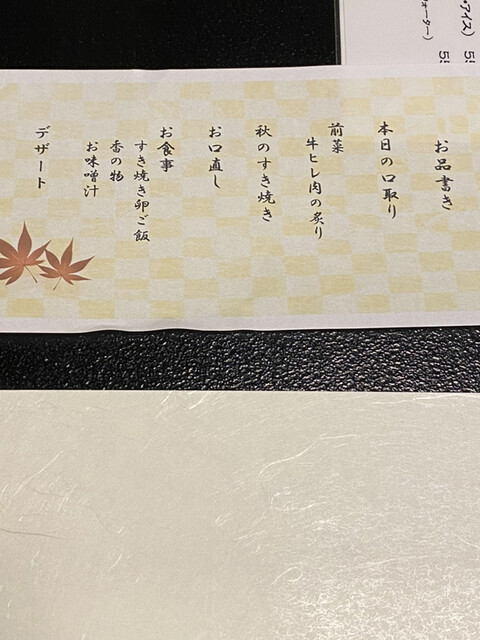 お品書き
本日の口取り
前菜
牛ヒレ肉の炙り
秋のすき焼き
お口直し
お食事
すき焼き卵ご飯
香の物
お味噌汁
デザート
・アイス)
ォーター)